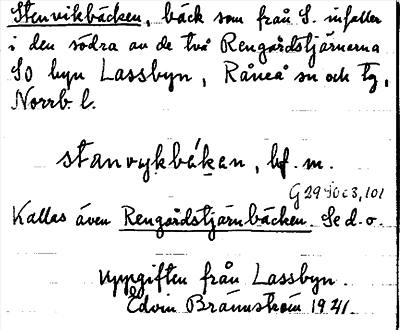 Stenvikbäcken, bäck som från S. infaller
i den södra av de två Rengårdstjärnarna
SO byn Lassbyn, Råneå sn och tg,
Norrb. l.
stanvykbäken, bf. m.
G 29 
Kallas även Rengårdstjärnbäcken. Se d. o.
Uppgiften från Lassbyn.
Edvin Brännström 1941.